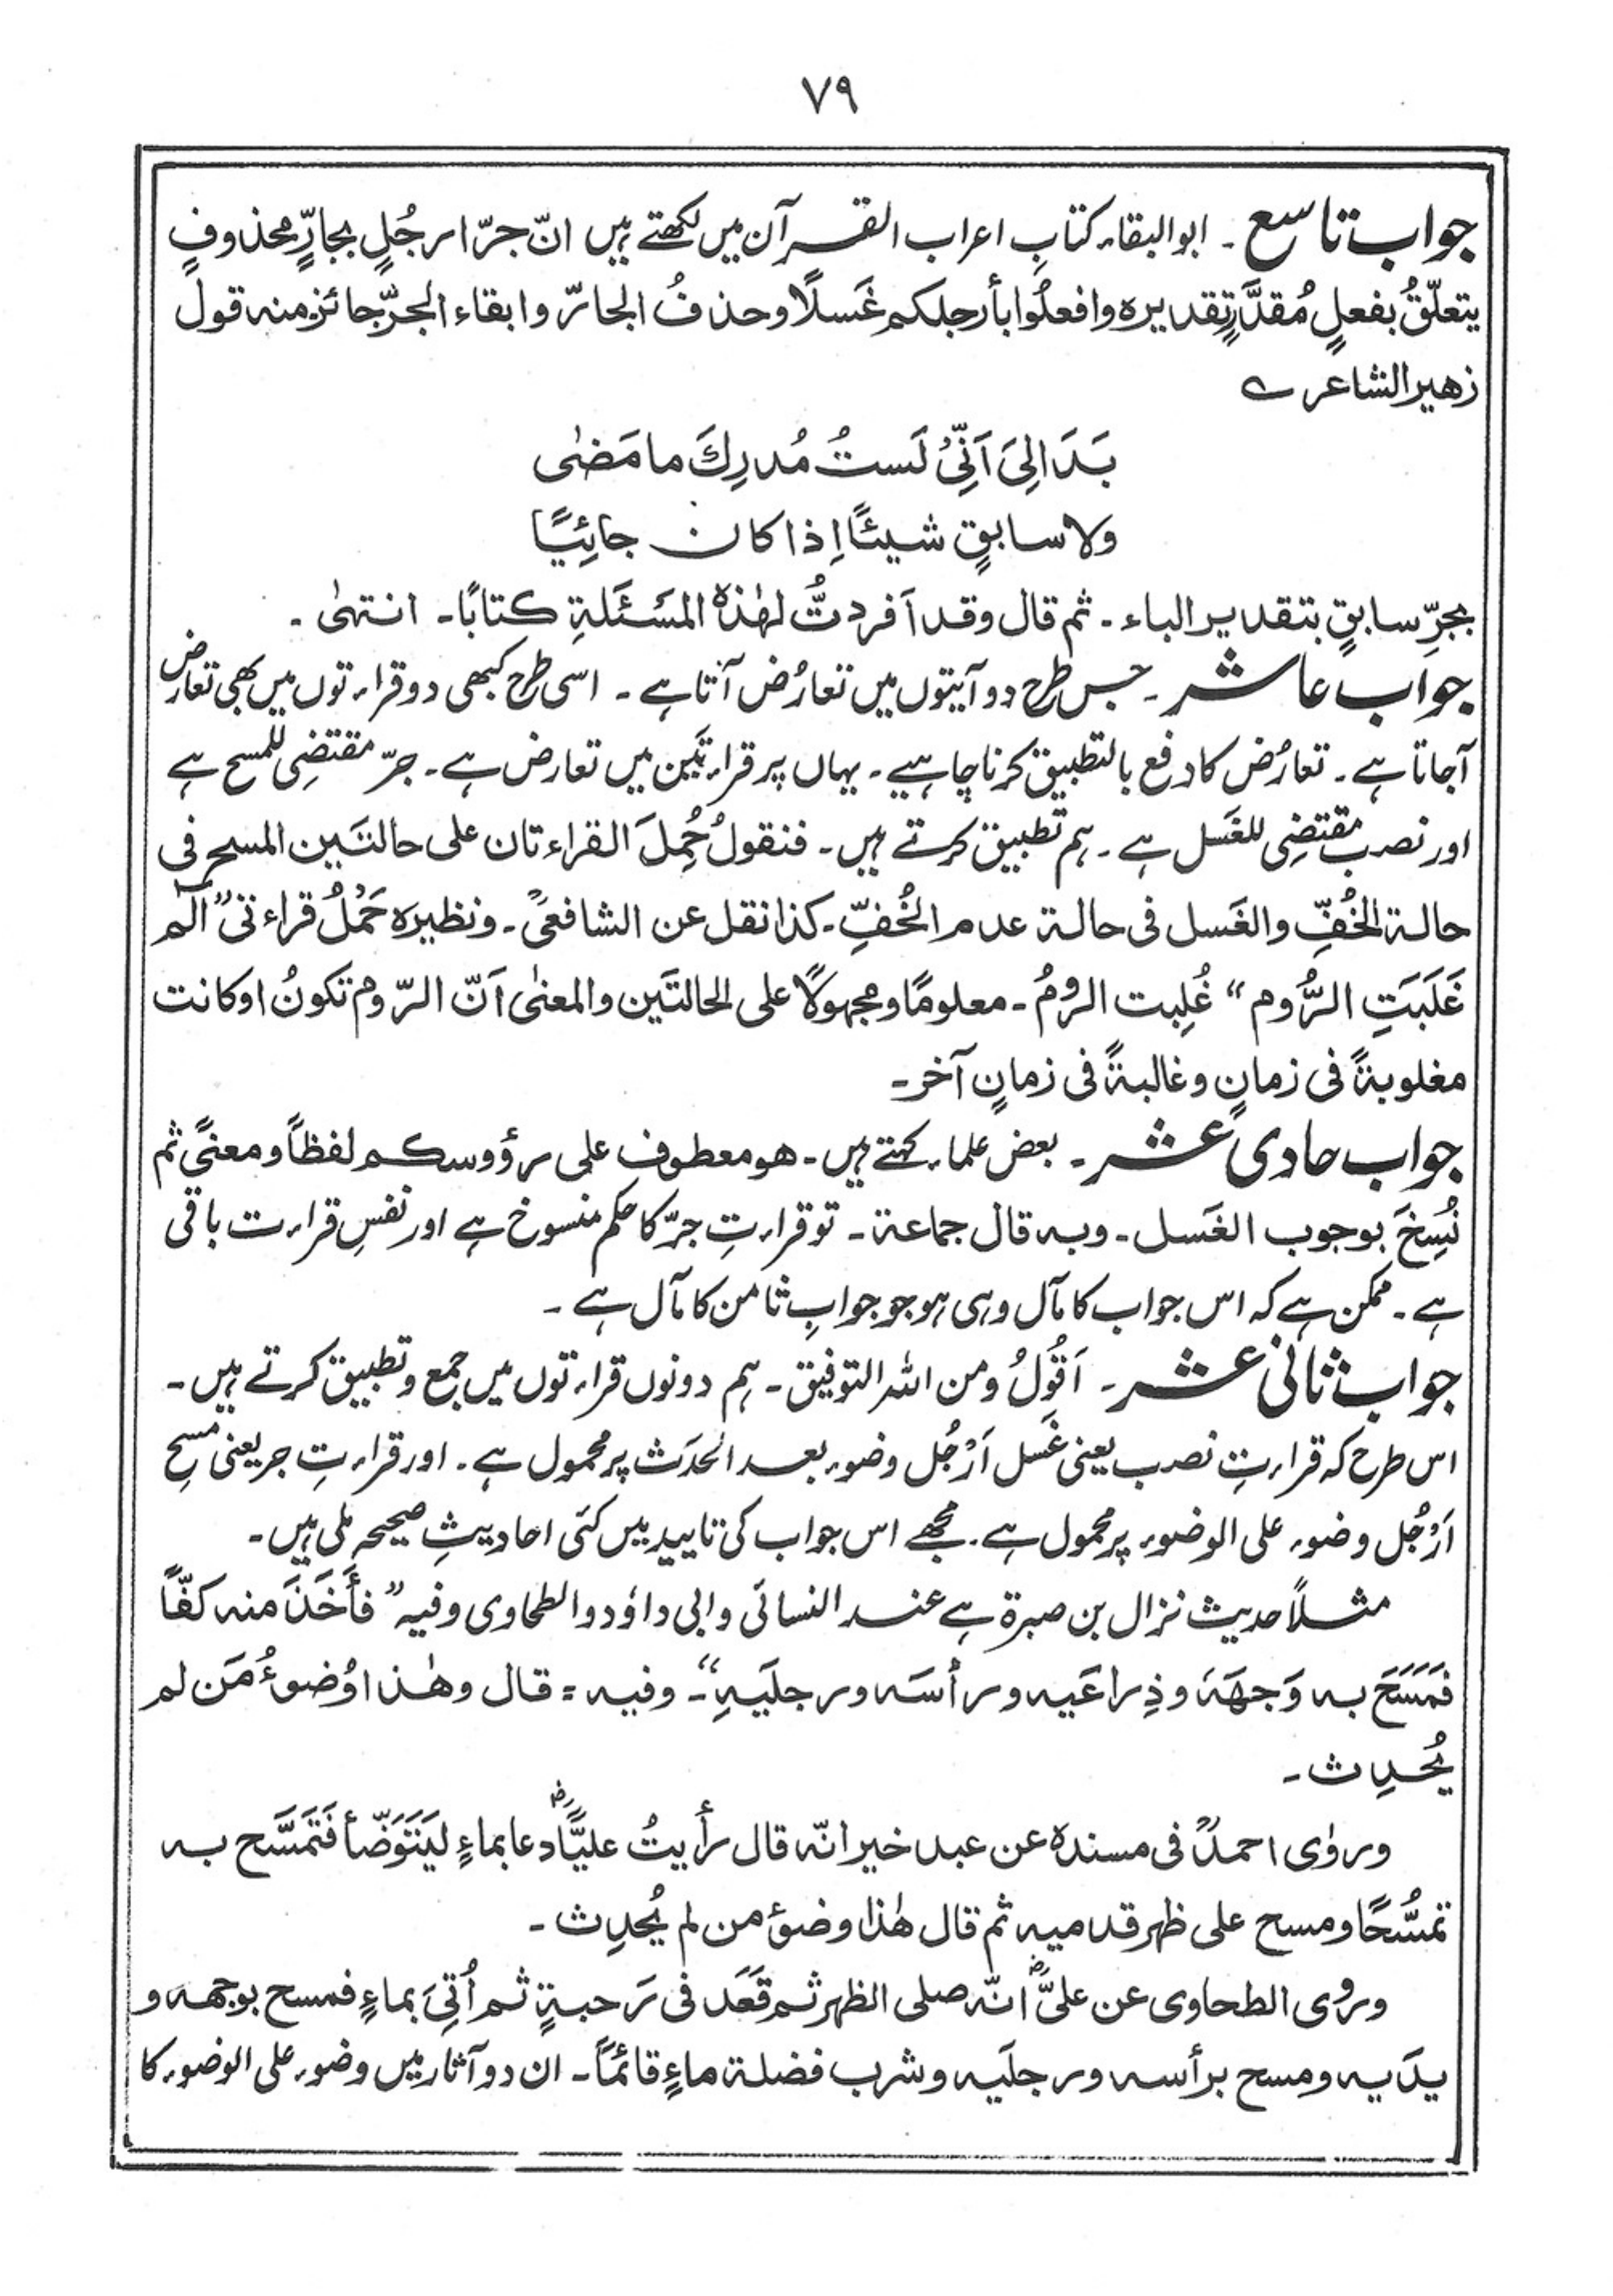 ۷۹
جواب تاسع ۔ ابو البقاء کتابِ اعراب القرآن میں لکھتے ہیں انّ جرّ ارجُلٍ بجارٍّ محذوفٍ
يتعلّقُ بفعلٍ مُقدَّرٍ تقديره وافعلُوا بأرجلكم غَسلًا وحذفُ الجارّ وابقاء الجرّ جائز منه قول
زهير الشاعر ے
بَدَا لِیَ اَنِّیْ لَستُ مُدرِكَ ما مَضٰى
ولا سابقٍ شيئًا اِذا كان جائِيًا
بجرِّ سابقٍ بتقدير الباء ۔ ثم قال وقد اَفردتُّ لهٰذه المَسْئَلةِ كتابًا ۔ انتهىٰ ۔
جواب عاشر ۔ جس طرح دو آیتوں میں تعارُض آتا ہے ۔ اسی طرح کبھی دو قراءتوں میں بھی تعارض
آجاتا ہے ۔ تعارُض کا دفع بالتطبیق کرنا چاہیے ۔ یہاں پر قراءتَین میں تعارض ہے ۔ جرّ مقتضِی للمسح ہے
اور نصب مقتضِی للغَسل ہے ۔ ہم تطبیق کرتے ہیں ۔ فنقولُ حُمِلَ القراءتان على حالتَين المسح فى
حالة الخُفِّ والغَسل فى حالة عدم الخُفِّ ۔ كذا نقل عن الشافعیؒ ۔ ونظيره حَمْلُ قراءتَی ” الٓم
غَلَبَتِ الرُّوم “ غُلِبت الرومُ ۔ معلومًا ومجهولًا على الحالتَين والمعنىٰ اَنّ الرّوم تكونُ او كانت
مغلوبةً فى زمانٍ وغالبةً فى زمانٍ آخر ۔
جواب حادی عشر ۔ بعض علماء کہتے ہیں ۔ هو معطوف على رؤوسكم لفظاً ومعنًى ثم
نُسِخَ بوجوب الغَسل ۔ وبه قال جماعة ۔ تو قراءتِ جرّ کا حکم منسوخ ہے اور نفسِ قراءت باقی
ہے ۔ ممکن ہے کہ اس جواب کا مآل وہی ہو جو جوابِ ثامن کا مآل ہے ۔
جواب ثانی عشر ۔ اَقُولُ ومن اللہ التوفیق ۔ ہم دونوں قراءتوں میں جمع و تطبیق کرتے ہیں ۔
اس طرح کہ قراءتِ نصب یعنی غَسل اَرْجُل وضوء بعد الحَدَث پر محمول ہے ۔ اور قراءتِ جر یعنی مسحِ
اَرْجُل وضوء علی الوضوء پر محمول ہے ۔ مجھے اس جواب کی تایید میں کئی احادیثِ صحیحہ ملی ہیں ۔
مثلاً حدیث نزال بن صبرة ہے عند النسائی وابی داؤد والطحاوی وفیہ ” فأَخَذَ منه كفّاً
فمَسَحَ به وَجهَه وذِراعَيه ورأسَه ورجلَيهِ “ ۔ وفيه = قال وهٰذا وُضوءُ مَن لم
يُحدِث ۔
وروٰى احمدؒ فى مسنده عن عبد خير انّه قال رأيتُ عليًّاؓ دعا بماءٍ ليَتَوَضّأ فَتَمَسَّح به
تمسُّحًا ومسح على ظهر قدميه ثم قال هٰذا وضوء من لم يُحدِث ۔
وروى الطحاوى عن علیؓ انّه صلى الظهر ثم قَعَد فى رَحبةٍ ثم اُتِیَ بماءٍ فمسح بوجهه و
يدَيه ومسح برأسه ورجلَيه وشرب فضلة ماءٍ قائمًا ۔ ان دو آثار میں وضوء علی الوضوء کا